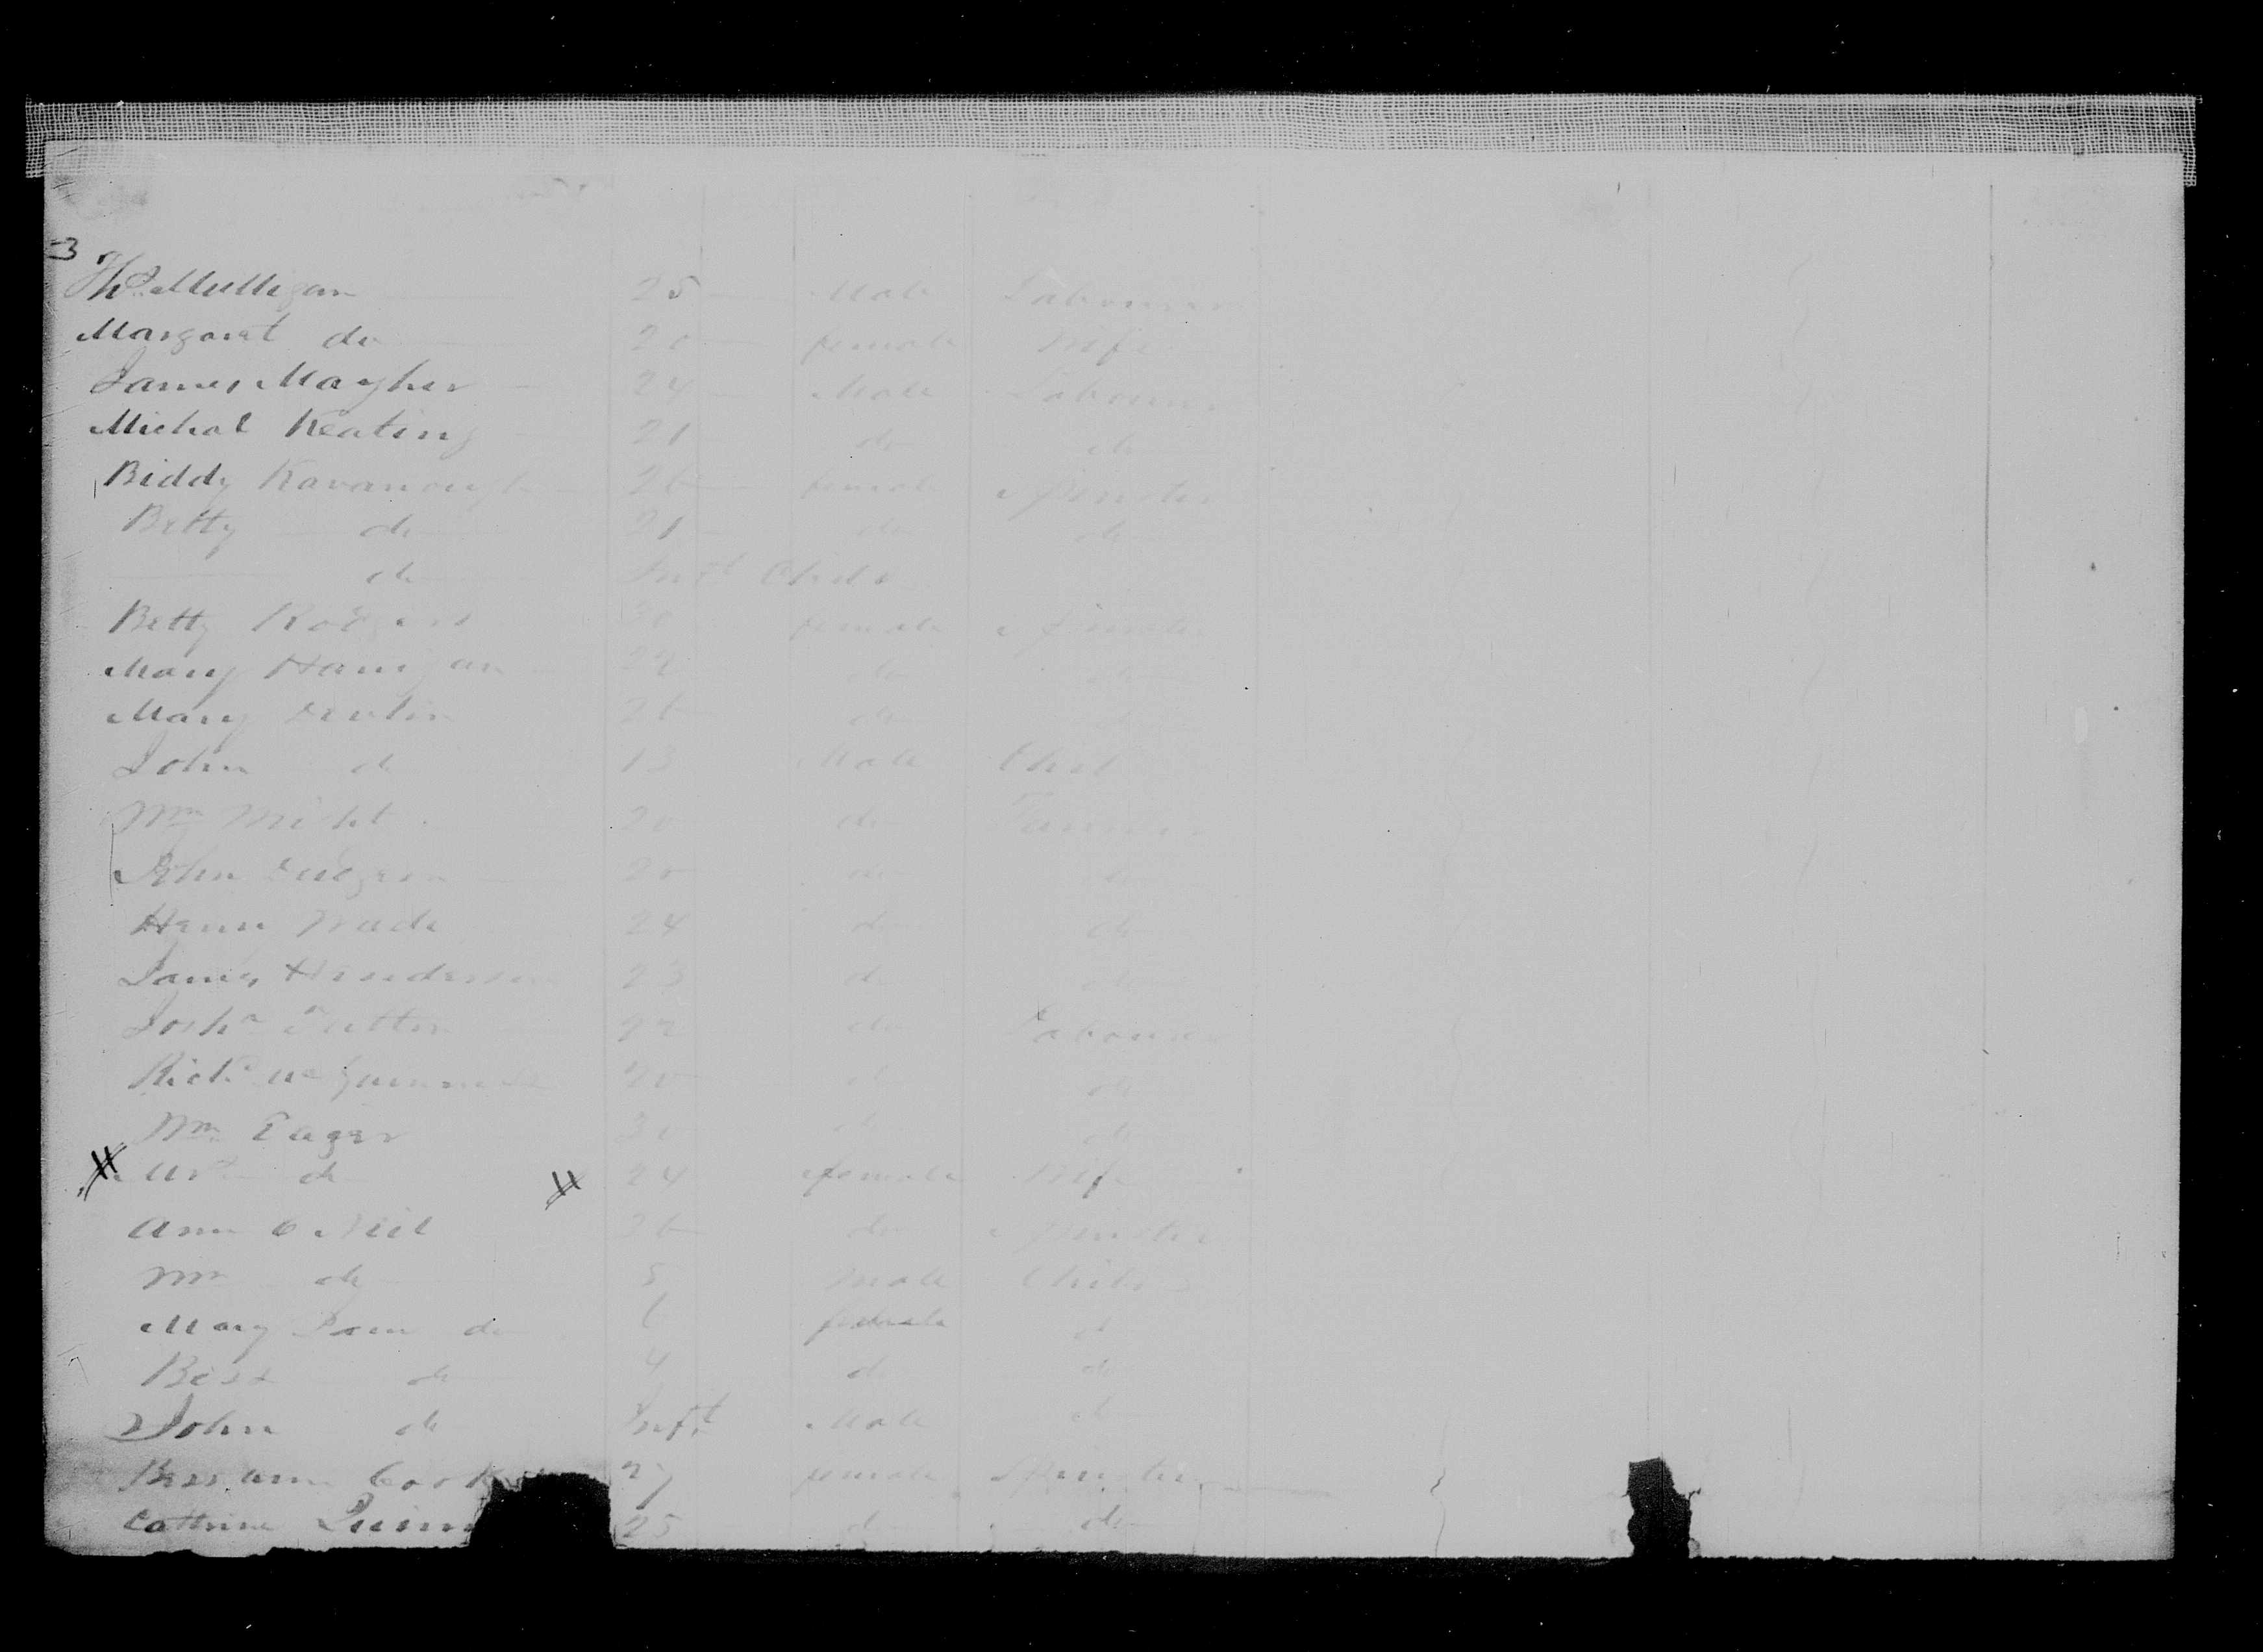 3
Thos Mulligan 25 Male Labourer
Margaret do 20 female Wife
James Maghir 24 Male Labourer
Michal Keating 21 do do
Biddy Kavanough 26 female Spinster
Betty do 21 do do
do Inft Child
Betty Rodgers 30 female Spinster
Mary Hanigan 22 do do
Mary Devlin 26 do do
John do 13 Male Child
Wm 20 do
John 20 do do
Wade 24 do do
James Henderson 23 do do
22 do Labourer
Richd 20 do do
Wm Eager 30 do do
Mrs do 24 female Wife
Ann O Neil 36 do Spinster
Wm do 5 Male Child
Mary Jane do 6 female do
Bess do 4 do do
John do Inft Male do
Bess Ann Cook 27 female Spinster
Cathrine Quinn 25 do do